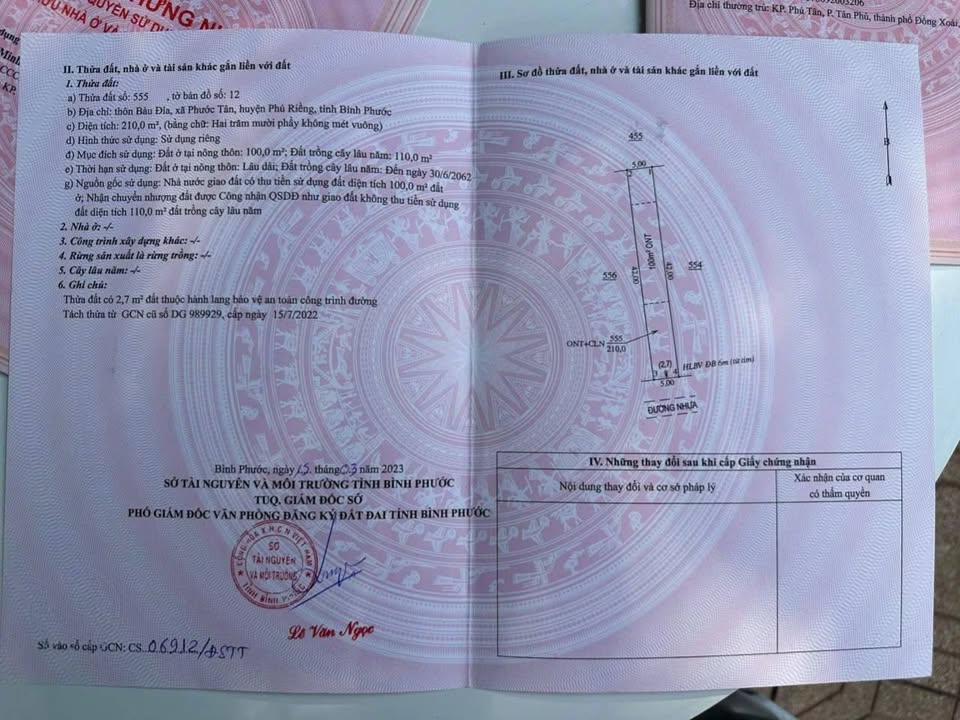 Địa chỉ thường trú: KP. Phú Tân, P. Tân Phú, thành phố Đồng Xoài,
II. Thửa đất, nhà ở và tài sản khác gắn liền với đất
1. Thửa đất:
a) Thửa đất số: 555 , tờ bản đồ số: 12
b) Địa chỉ: thôn Bàu Đỉa, xã Phước Tân, huyện Phú Riềng, tỉnh Bình Phước
c) Diện tích: 210,0 m², (bằng chữ: Hai trăm mười phẩy không mét vuông)
d) Hình thức sử dụng: Sử dụng riêng
đ) Mục đích sử dụng: Đất ở tại nông thôn: 100,0 m²; Đất trồng cây lâu năm: 110,0 m²
e) Thời hạn sử dụng: Đất ở tại nông thôn: Lâu dài; Đất trồng cây lâu năm: Đến ngày 30/6/2062
g) Nguồn gốc sử dụng: Nhà nước giao đất có thu tiền sử dụng đất diện tích 100,0 m² đất
ở; Nhận chuyển nhượng đất được Công nhận QSDĐ như giao đất không thu tiền sử dụng
đất diện tích 110,0 m² đất trồng cây lâu năm
2. Nhà ở: -/-
3. Công trình xây dựng khác: -/-
4. Rừng sản xuất là rừng trồng: -/-
5. Cây lâu năm: -/-
6. Ghi chú:
Thửa đất có 2,7 m² đất thuộc hành lang bảo vệ an toàn công trình đường
Tách thửa từ GCN cũ số DG 989929, cấp ngày 15/7/2022
Bình Phước, ngày 15 tháng 03 năm 2023
SỞ TÀI NGUYÊN VÀ MÔI TRƯỜNG TỈNH BÌNH PHƯỚC
TUQ. GIÁM ĐỐC SỞ
PHÓ GIÁM ĐỐC VĂN PHÒNG ĐĂNG KÝ ĐẤT ĐAI TỈNH BÌNH PHƯỚC
SỞ
TÀI NGUYÊN
VÀ MÔI TRƯỜNG
Lê Văn Ngọc
Số vào sổ cấp GCN: CS 06912/ĐSTT
III. Sơ đồ thửa đất, nhà ở và tài sản khác gắn liền với đất
B
455
5.00
100m² ONT
42.00
42.00
556
554
ONT+CLN 555
210,0
(2,7)
HLBV ĐB 6m (từ tim)
3
4
5.00
ĐƯỜNG NHỰA
IV. Những thay đổi sau khi cấp Giấy chứng nhận
Nội dung thay đổi và cơ sở pháp lý
Xác nhận của cơ quan
có thẩm quyền